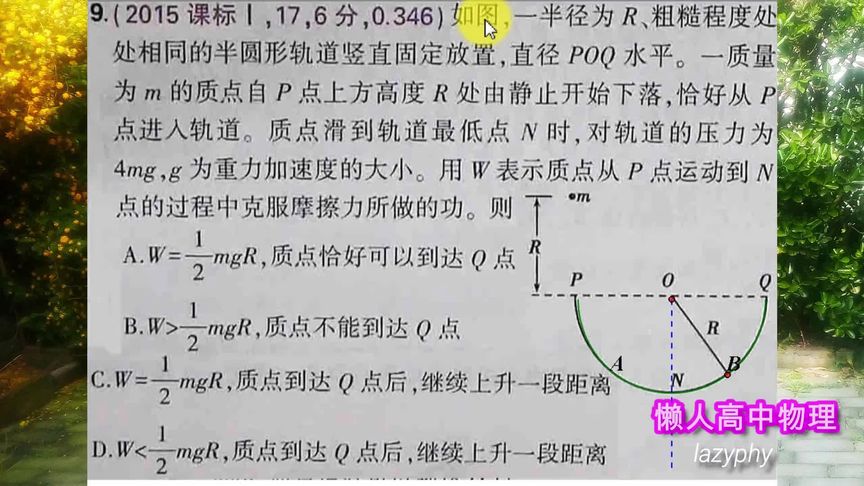 9.(2015 课标Ⅰ,17,6 分,0.346)如图,一半径为 R、粗糙程度处
处相同的半圆形轨道竖直固定放置,直径 POQ 水平。一质量
为 m 的质点自 P 点上方高度 R 处由静止开始下落,恰好从 P
点进入轨道。质点滑到轨道最低点 N 时,对轨道的压力为
4mg,g 为重力加速度的大小。用 W 表示质点从 P 点运动到 N
点的过程中克服摩擦力所做的功。则
A.W=1/2mgR,质点恰好可以到达 Q 点
B.W>1/2mgR,质点不能到达 Q 点
C.W=1/2mgR,质点到达 Q 点后,继续上升一段距离
D.W<1/2mgR,质点到达 Q 点后,继续上升一段距离
m
R
P O Q
R
A B
N
懒人高中物理
lazyphy